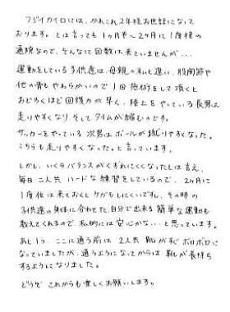 フジイカイロには、かれこれ2年程お世話になって
おります。とは言っても1ヶ月半〜2ヶ月に1度程の
通院なので、そんなに回数は来ていませんが…
運動をしている子供達は、母親の私と違い、股関節や
他の骨もやわらかいので1回施術をして頂くと
おどろくほど回復が早く、陸上をやっている長男は
走りやすくなり、そしてタイムが縮むのです。
サッカーをやっている次男はボールが蹴りやすくなった。
こちらも走りやすくなった。と言っています。
しかし、いくらバランスがくずれにくくなったとは言え、
毎日二人共ハードな練習をしているので、2ヶ月に
1度位は来ておくとケガもしにくいですし、その時の
子供達の身体に合わせた、自分で出来る簡単な運動も
教えてくれるので私的には安心かな…と思っています。
あと1つ、ここに通う前は2人共靴がすぐボロボロに
なっていましたが、通うようになってからは靴が長持ち
するようになりました。
どうぞこれからも宜しくお願いします。